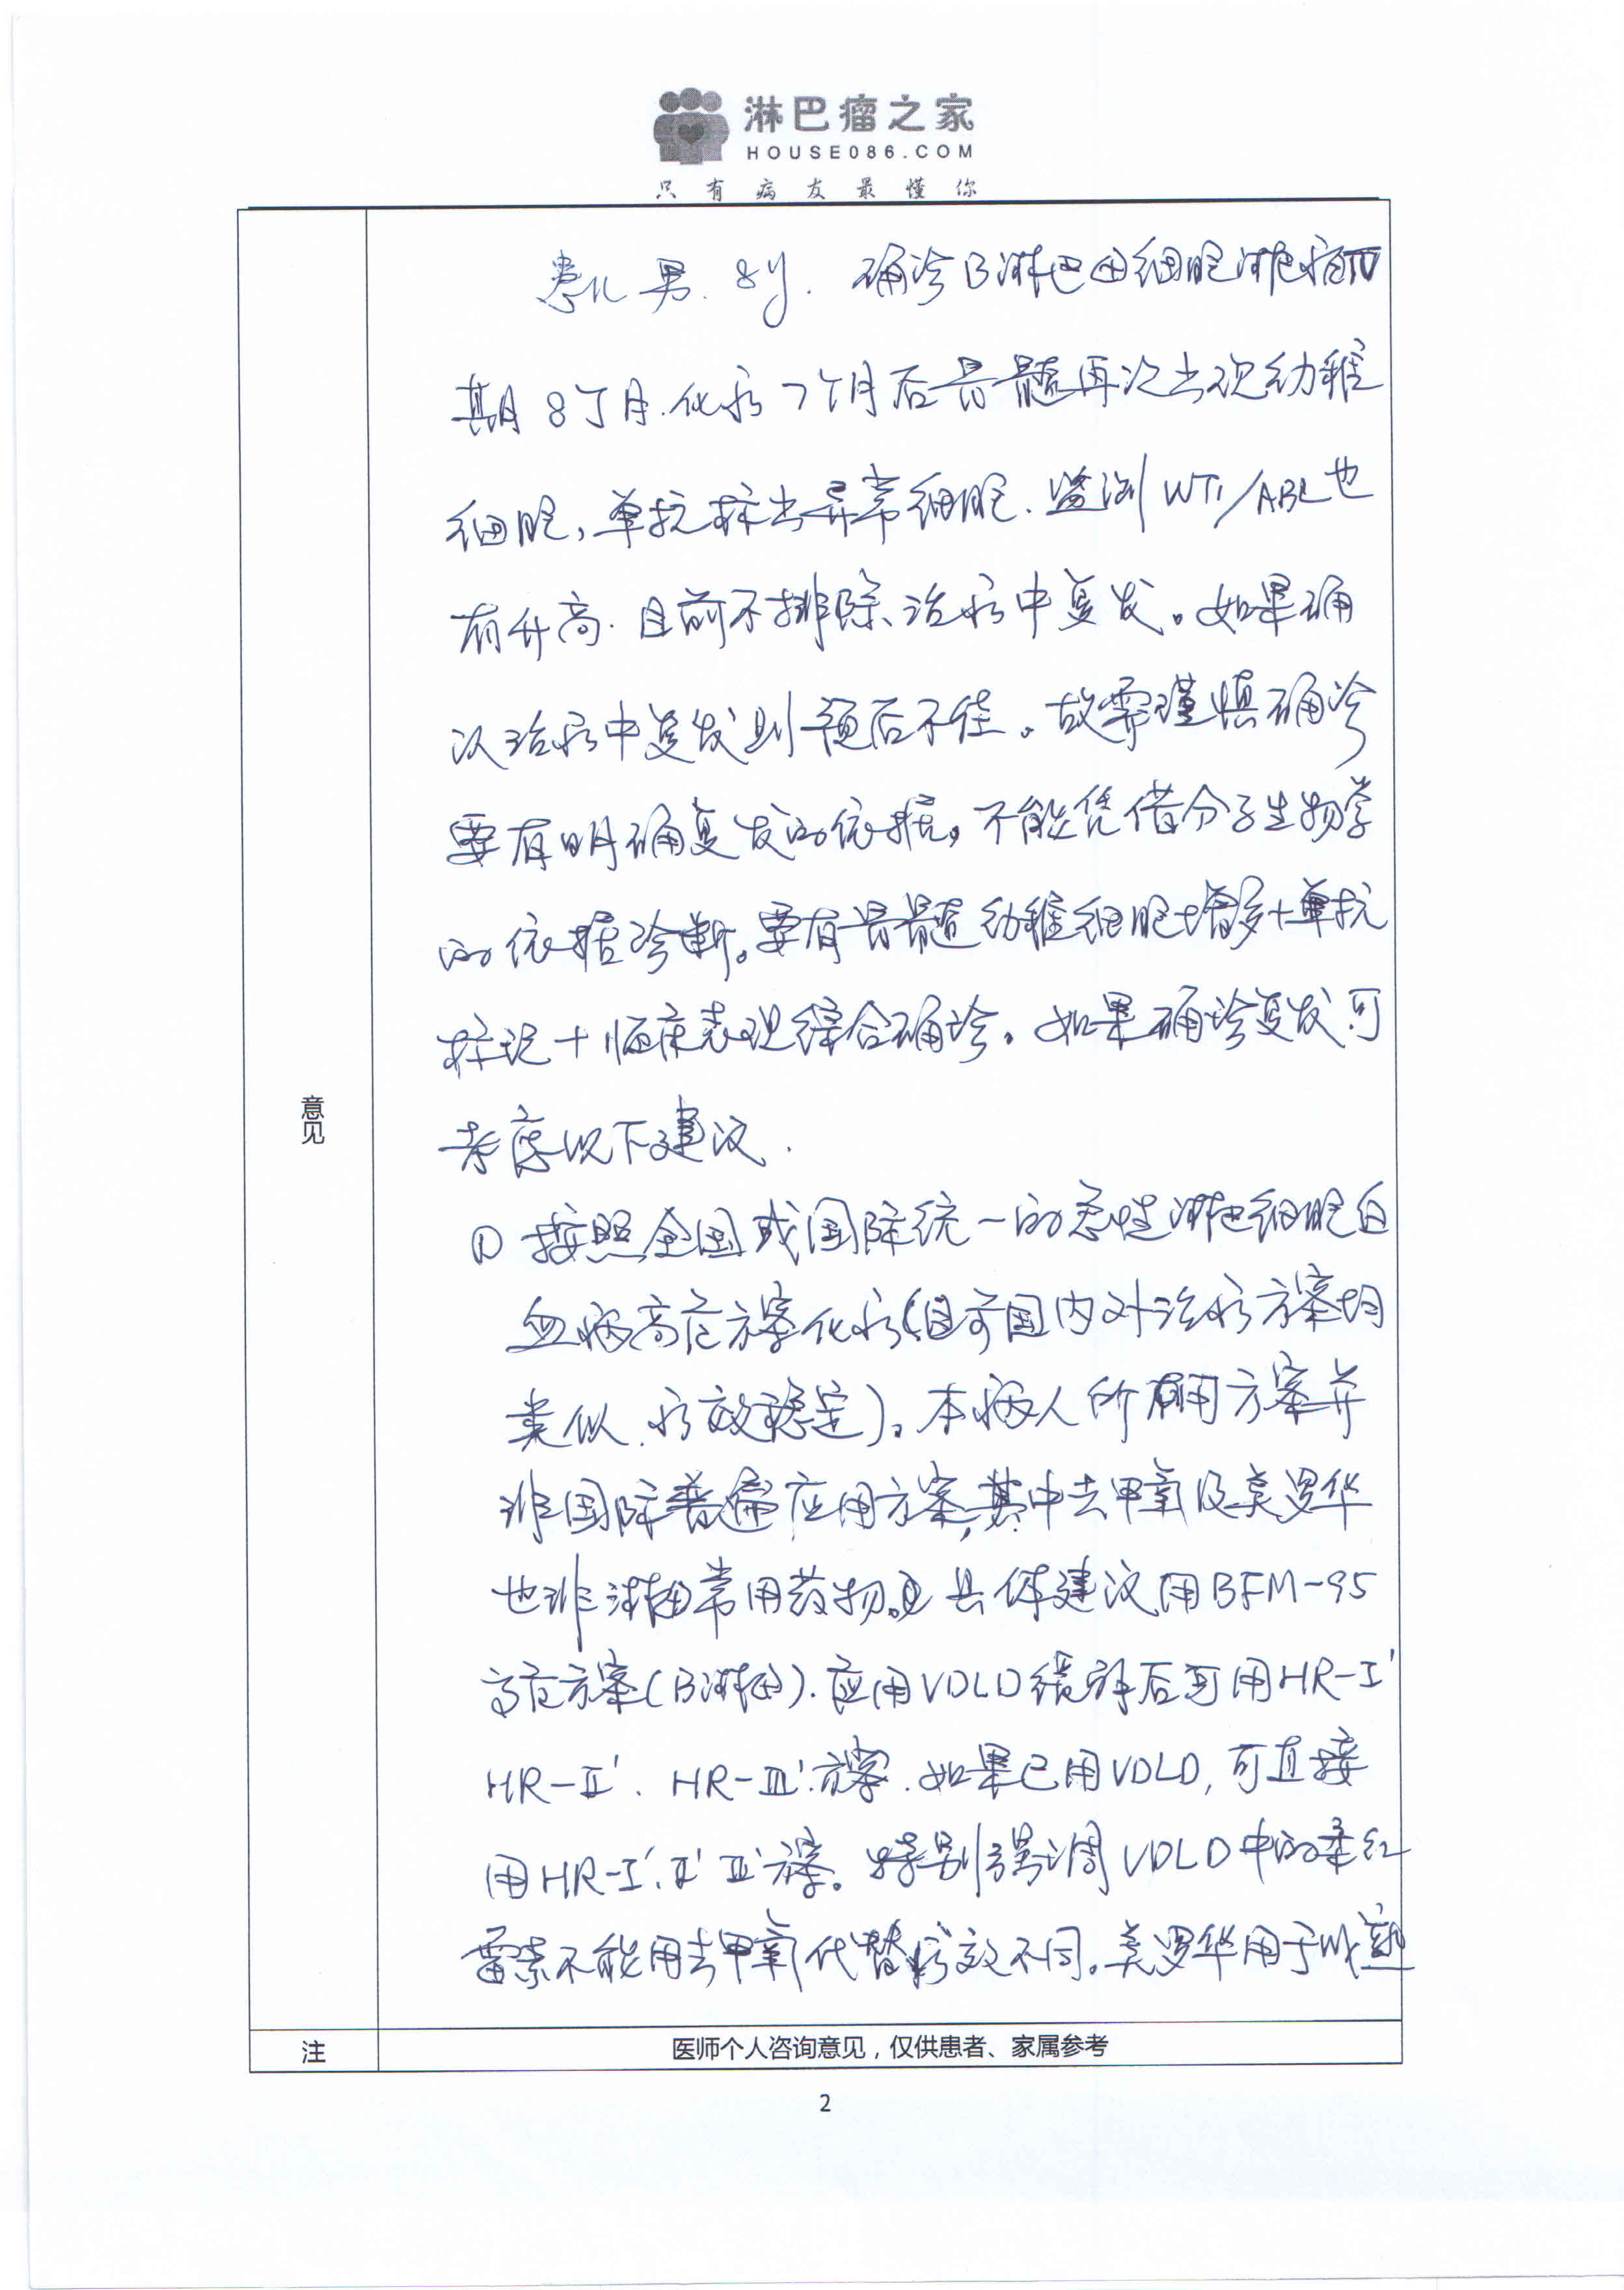 淋巴瘤之家
HOUSE086.COM
只有病友最懂你
患儿 男. 8y. 确诊B淋巴母细胞淋巴瘤IV
期8个月.化疗7个月后骨髓再次出现幼稚
细胞,单抗标出异常细胞.监测WT1/ABL也
有升高.目前不排除治疗中复发。如果确
认治疗中复发则预后不佳。故需谨慎确诊
要有明确复发的依据,不能凭借分子生物学
的依据诊断。要有骨髓幼稚细胞增多+单抗
标记+临床表现综合确诊。如果确诊复发可
考虑以下建议.
① 按照全国或国际统一的急性淋巴细胞白
血病高危方案化疗(目前国内外治疗方案均
类似.疗效稳定)。本病人所用方案并
非国际普遍应用方案,其中去甲氧及美罗华
也非淋母常用药物。具体建议用BFM-95
高危方案(B淋母).应用VDLD缓解后可用HR-I'
HR-II'. HR-III'方案.如果已用VDLD,可直接
用HR-I'.II' III'方案。特别强调VDLD中的柔红
霉素不能用去甲氧代替疗效不同。美罗华用于成熟
意见
注
医师个人咨询意见,仅供患者、家属参考
2